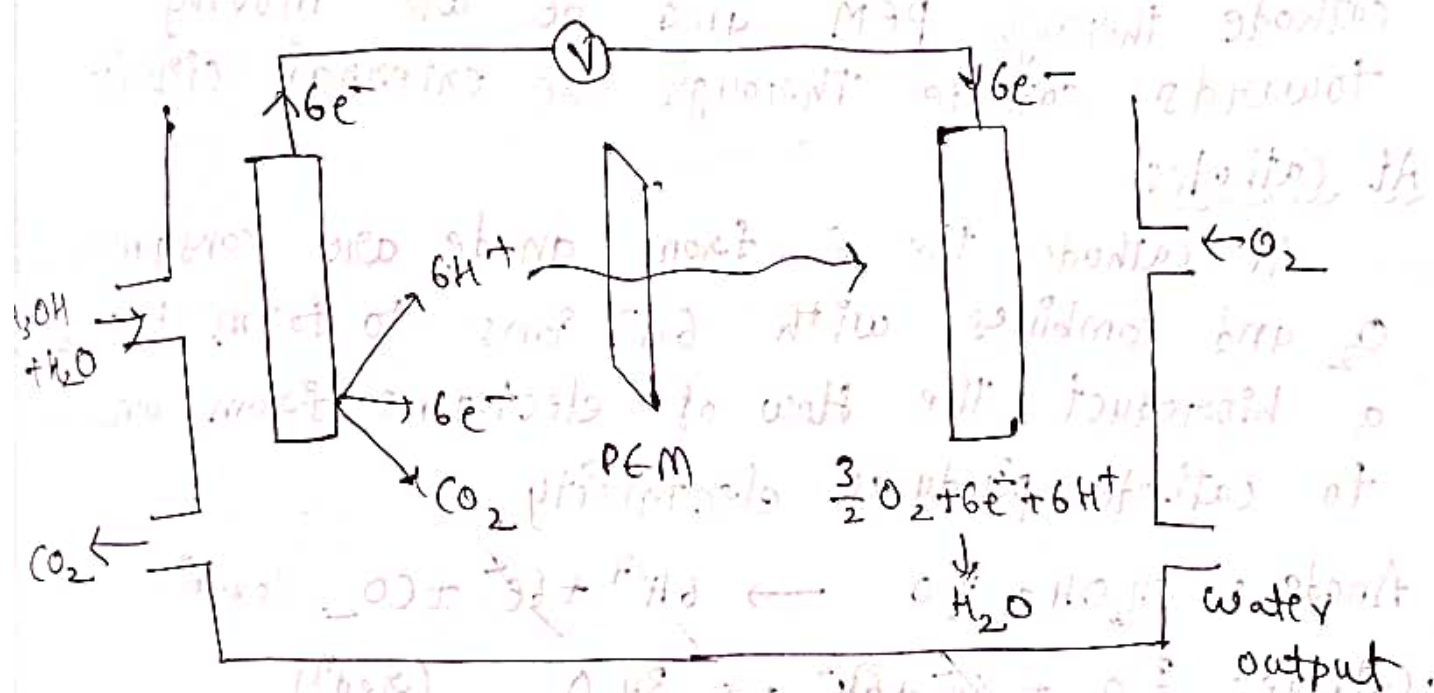 V
6e⁻
6e⁻
6H⁺
←O₂
₃OH
+H₂O
6e⁻
PEM
CO₂
3/2 O₂ + 6e⁻ + 6H⁺
↓
H₂O
CO₂ ←
Water
output.